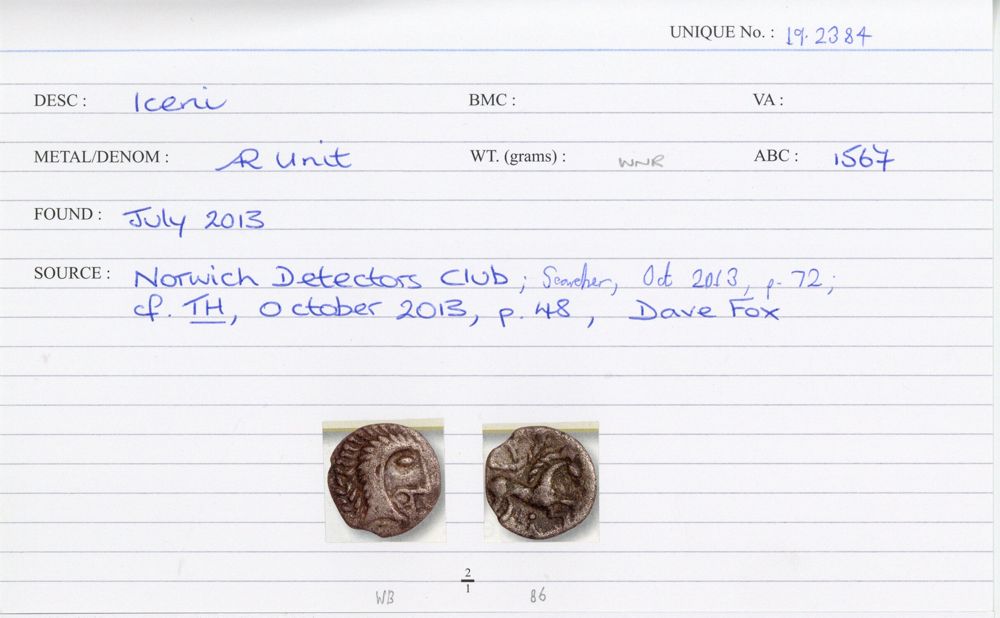 UNIQUE No. : 19.2384
DESC : Iceni BMC : VA :
METAL/DENOM : AR Unit WT. (grams) : WNR ABC : 1567
FOUND : July 2013
SOURCE : Norwich Detectors Club ; Searcher, Oct 2013, p. 72 ;
cf. TH, October 2013, p. 48, Dave Fox
2
1
WB 86